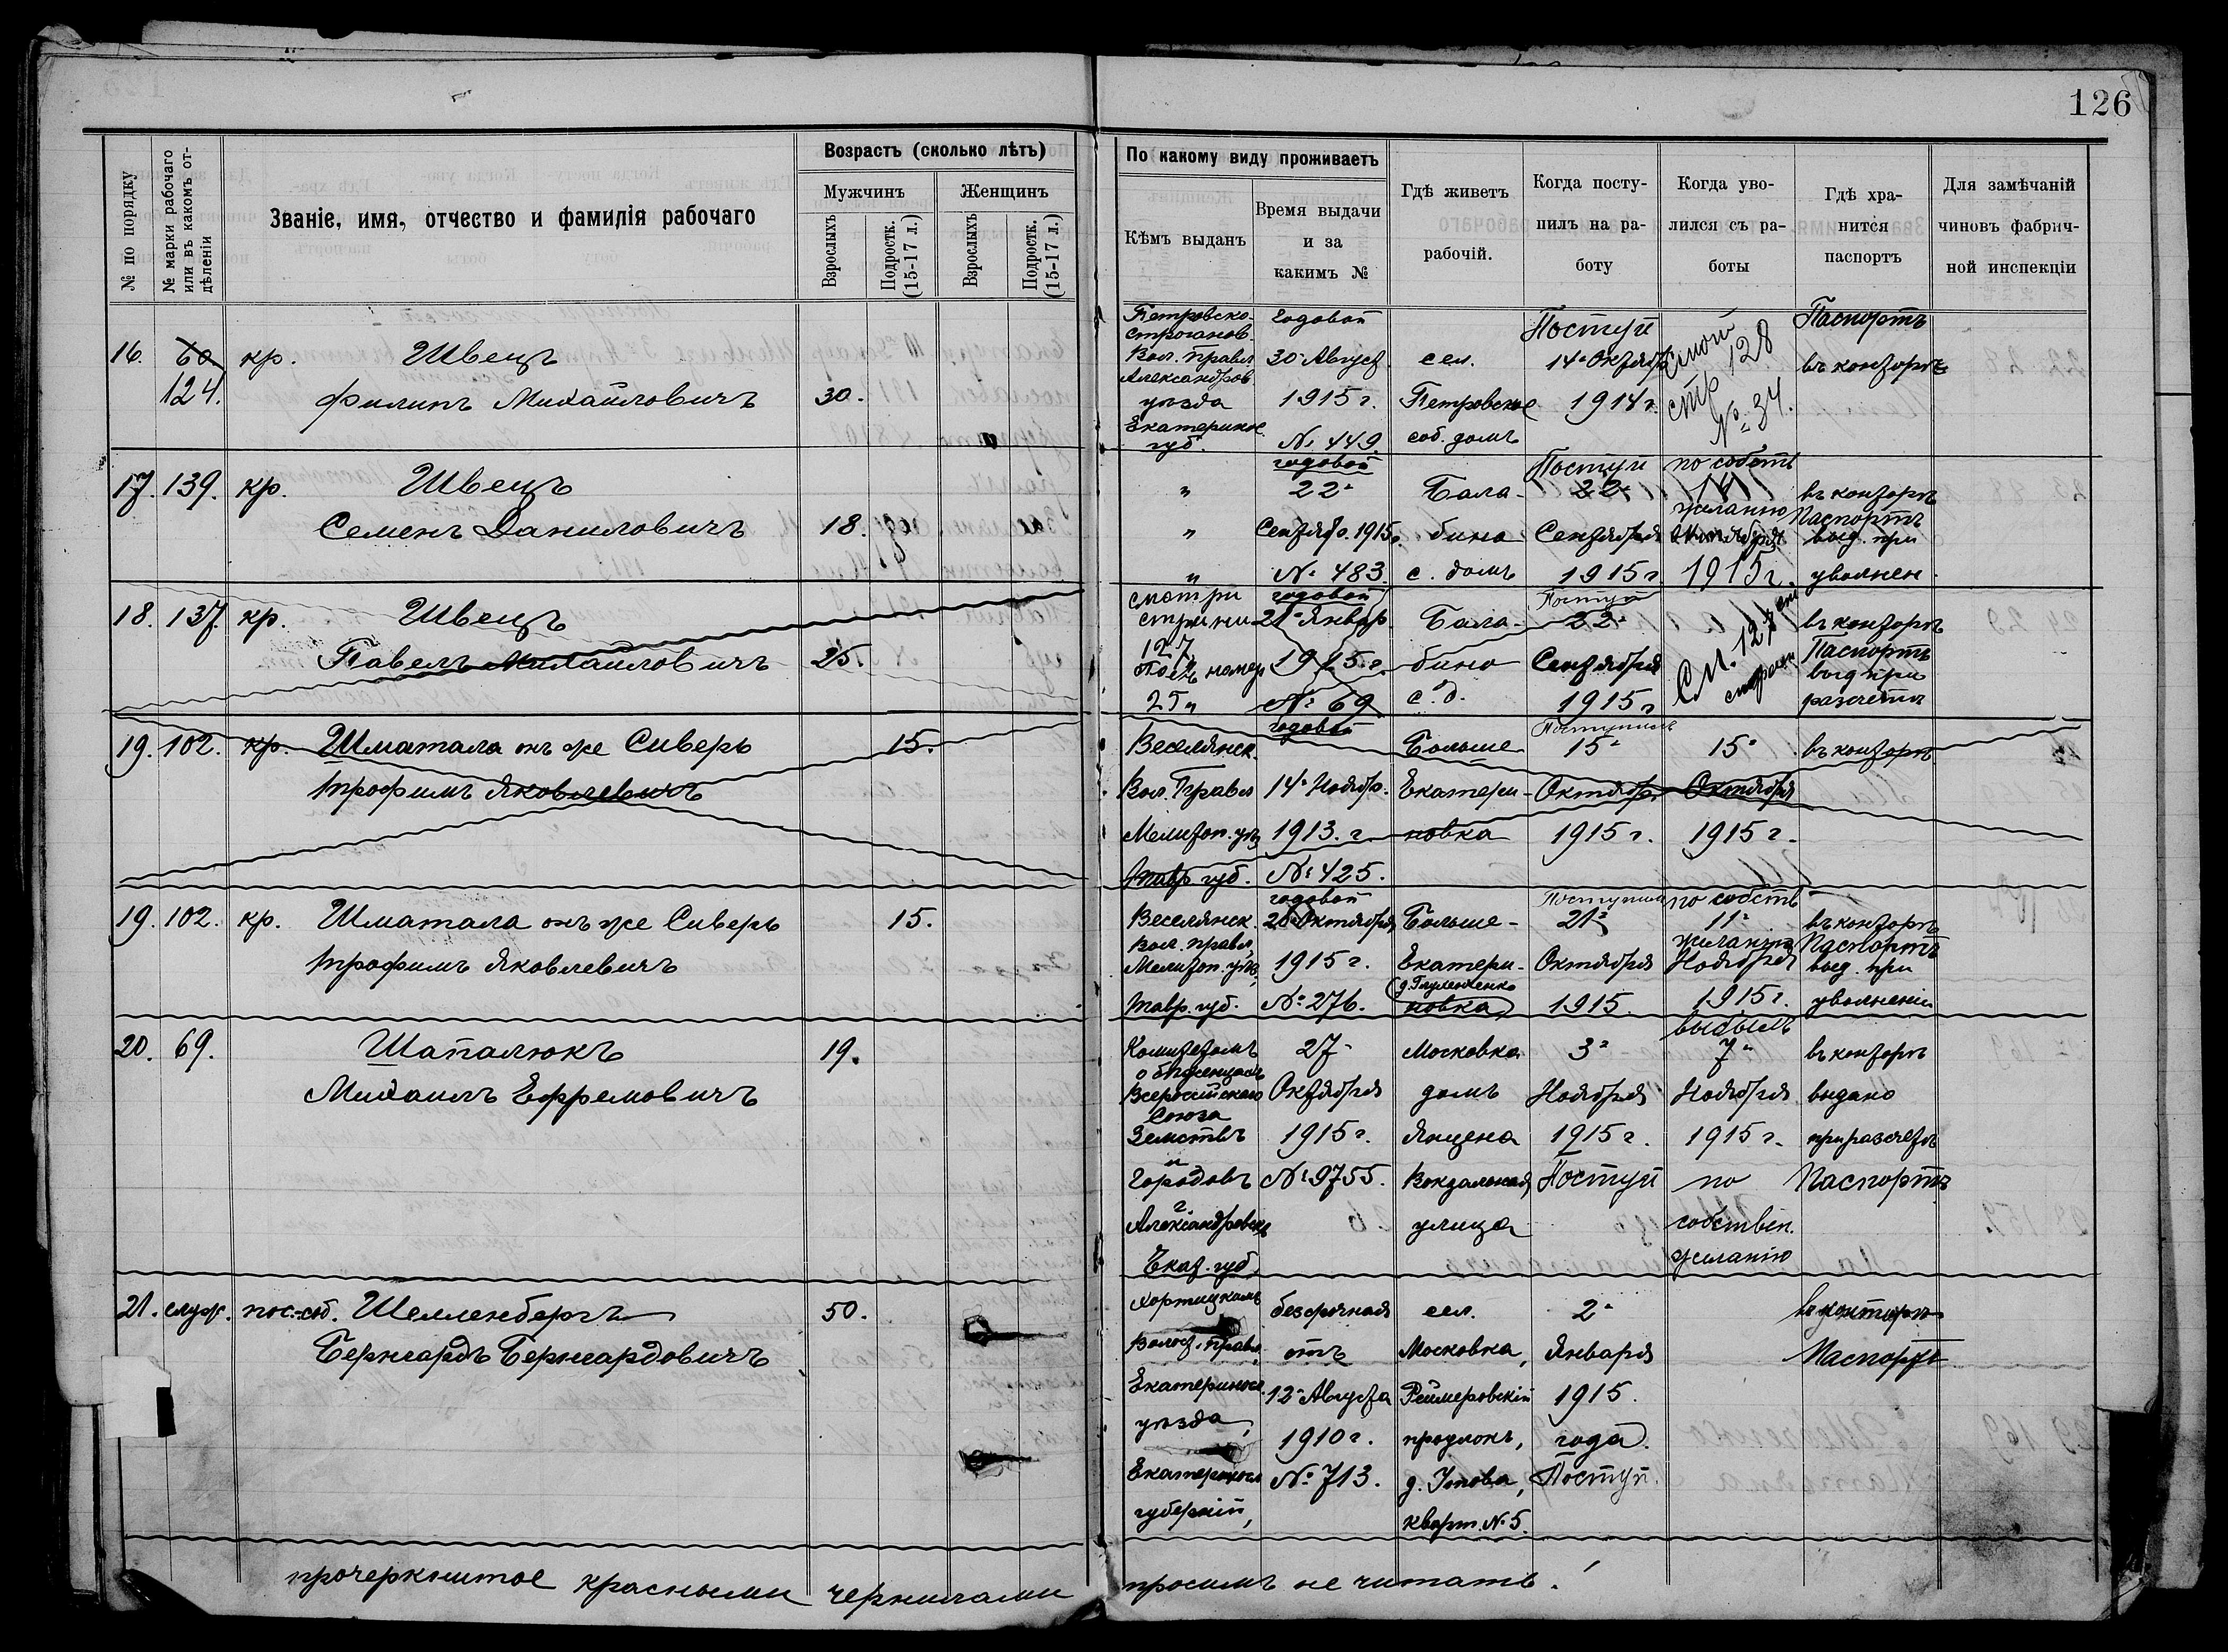 126
№ по порядку
№ марки рабочаго или въ какомъ отдѣленіи
Званіе, имя, отчество и фамилія рабочаго
Возрастъ (сколько лѣтъ)
Мужчинъ
Женщинъ
Взрослыхъ
Подростк. (15-17 л.)
Взрослыхъ
Подростк. (15-17 л.)
По какому виду проживаетъ
Кѣмъ выданъ
Время выдачи и за какимъ №
Гдѣ живетъ рабочій.
Когда поступилъ на работу
Когда уволился съ работы
Гдѣ хранится паспортъ
Для замѣчаній чиновъ фабричной инспекціи
16.
60
124.
кр. Швецъ
Филипъ Михайловичъ
30.
Петровско-
строганов.
Вол. правл
Александров
уѣзда
Екатеринос.
губ.
Годовой
30 Август.
1915 г.
№ 449
сел.
Петровское
соб. домъ
Поступ
14 Октябр
1914 г.
стр 128
№ 34.
Паспортъ
въ конторѣ
17. 139. кр. Швецъ
Семенъ Даниловичъ
18.
"
"
"
годовой
22
Сентябр. 1915 г.
№ 483.
Бала-
бино
с. домъ
Поступ
22
Сентября
1915 г
по собств
желанію
1915 г.
въ конторѣ
Паспортъ
выд. при
уволнен.
18. 137. кр. Швецъ
Павелъ Михайловичъ
25.
смотри
127
25
годовой
21 Январ.
1915 г.
№ 69
Бала-
бино
с. д.
Поступ
22
Сентября
1915 г
См. 127
въ конторѣ
Паспортъ
выд при
разсчетѣ
19. 102. кр. Шматала онъ же Сиверъ
Трофимъ Яковлевичъ
15.
Веселянск.
Вол. Правл
Мелитоп. уѣз
Тавр. губ.
годовой
14 Ноябр.
1913. г
№ 425.
Больше
Екатери-
новка
Поступилъ
15
Октябр.
1915 г.
15
Октября
1915 г.
въ конторѣ
19. 102. кр. Шматала онъ же Сиверъ
Трофимъ Яковлевичъ
15.
Веселянск.
Вол. правл,
Мелитоп. уѣз,
Тавр. губ.
годовой
20 Октября
1915 г.
№ 276.
Больше-
Екатери-
новка
Поступил
21
Октября
1915.
по собств
11
желанію
Ноября
1915 г.
въ конторѣ
Паспортъ
выд. при
уволненіи
20. 69. Шапалюкъ
Михаилъ Ефремовичъ
19.
Комитетомъ
о бѣженцахъ
Всероссійскаго
Союза
Земствъ
и
Городовъ
г
Александровск
Екат. губ.
27
Октября
1915 г.
№ 9755.
Московка
домъ
Яцена
Вокзальная
улица
3
Ноября
1915 г.
Поступ
выбылъ
7
Ноября
1915 г.
по
собствен.
желанію
въ конторѣ
выдано
при разсчетѣ
Паспортъ
21. служ. пос.-соб. Шелленбергъ
Бернгардъ Бернгардовичъ
50.
Хортицкимъ
Волост. правл,
Екатеринос.
уѣзда,
Екатеринос.
губерніи,
безсрочная
отъ
12 Августа
1910 г.
№ 713.
сел.
Московка,
Реймеровскій
проулокъ,
кварт. № 5.
2
Января
1915.
года.
Поступ.
въ конторѣ
Паспортъ
прочеркнитое красными чернилами просимъ не читать.